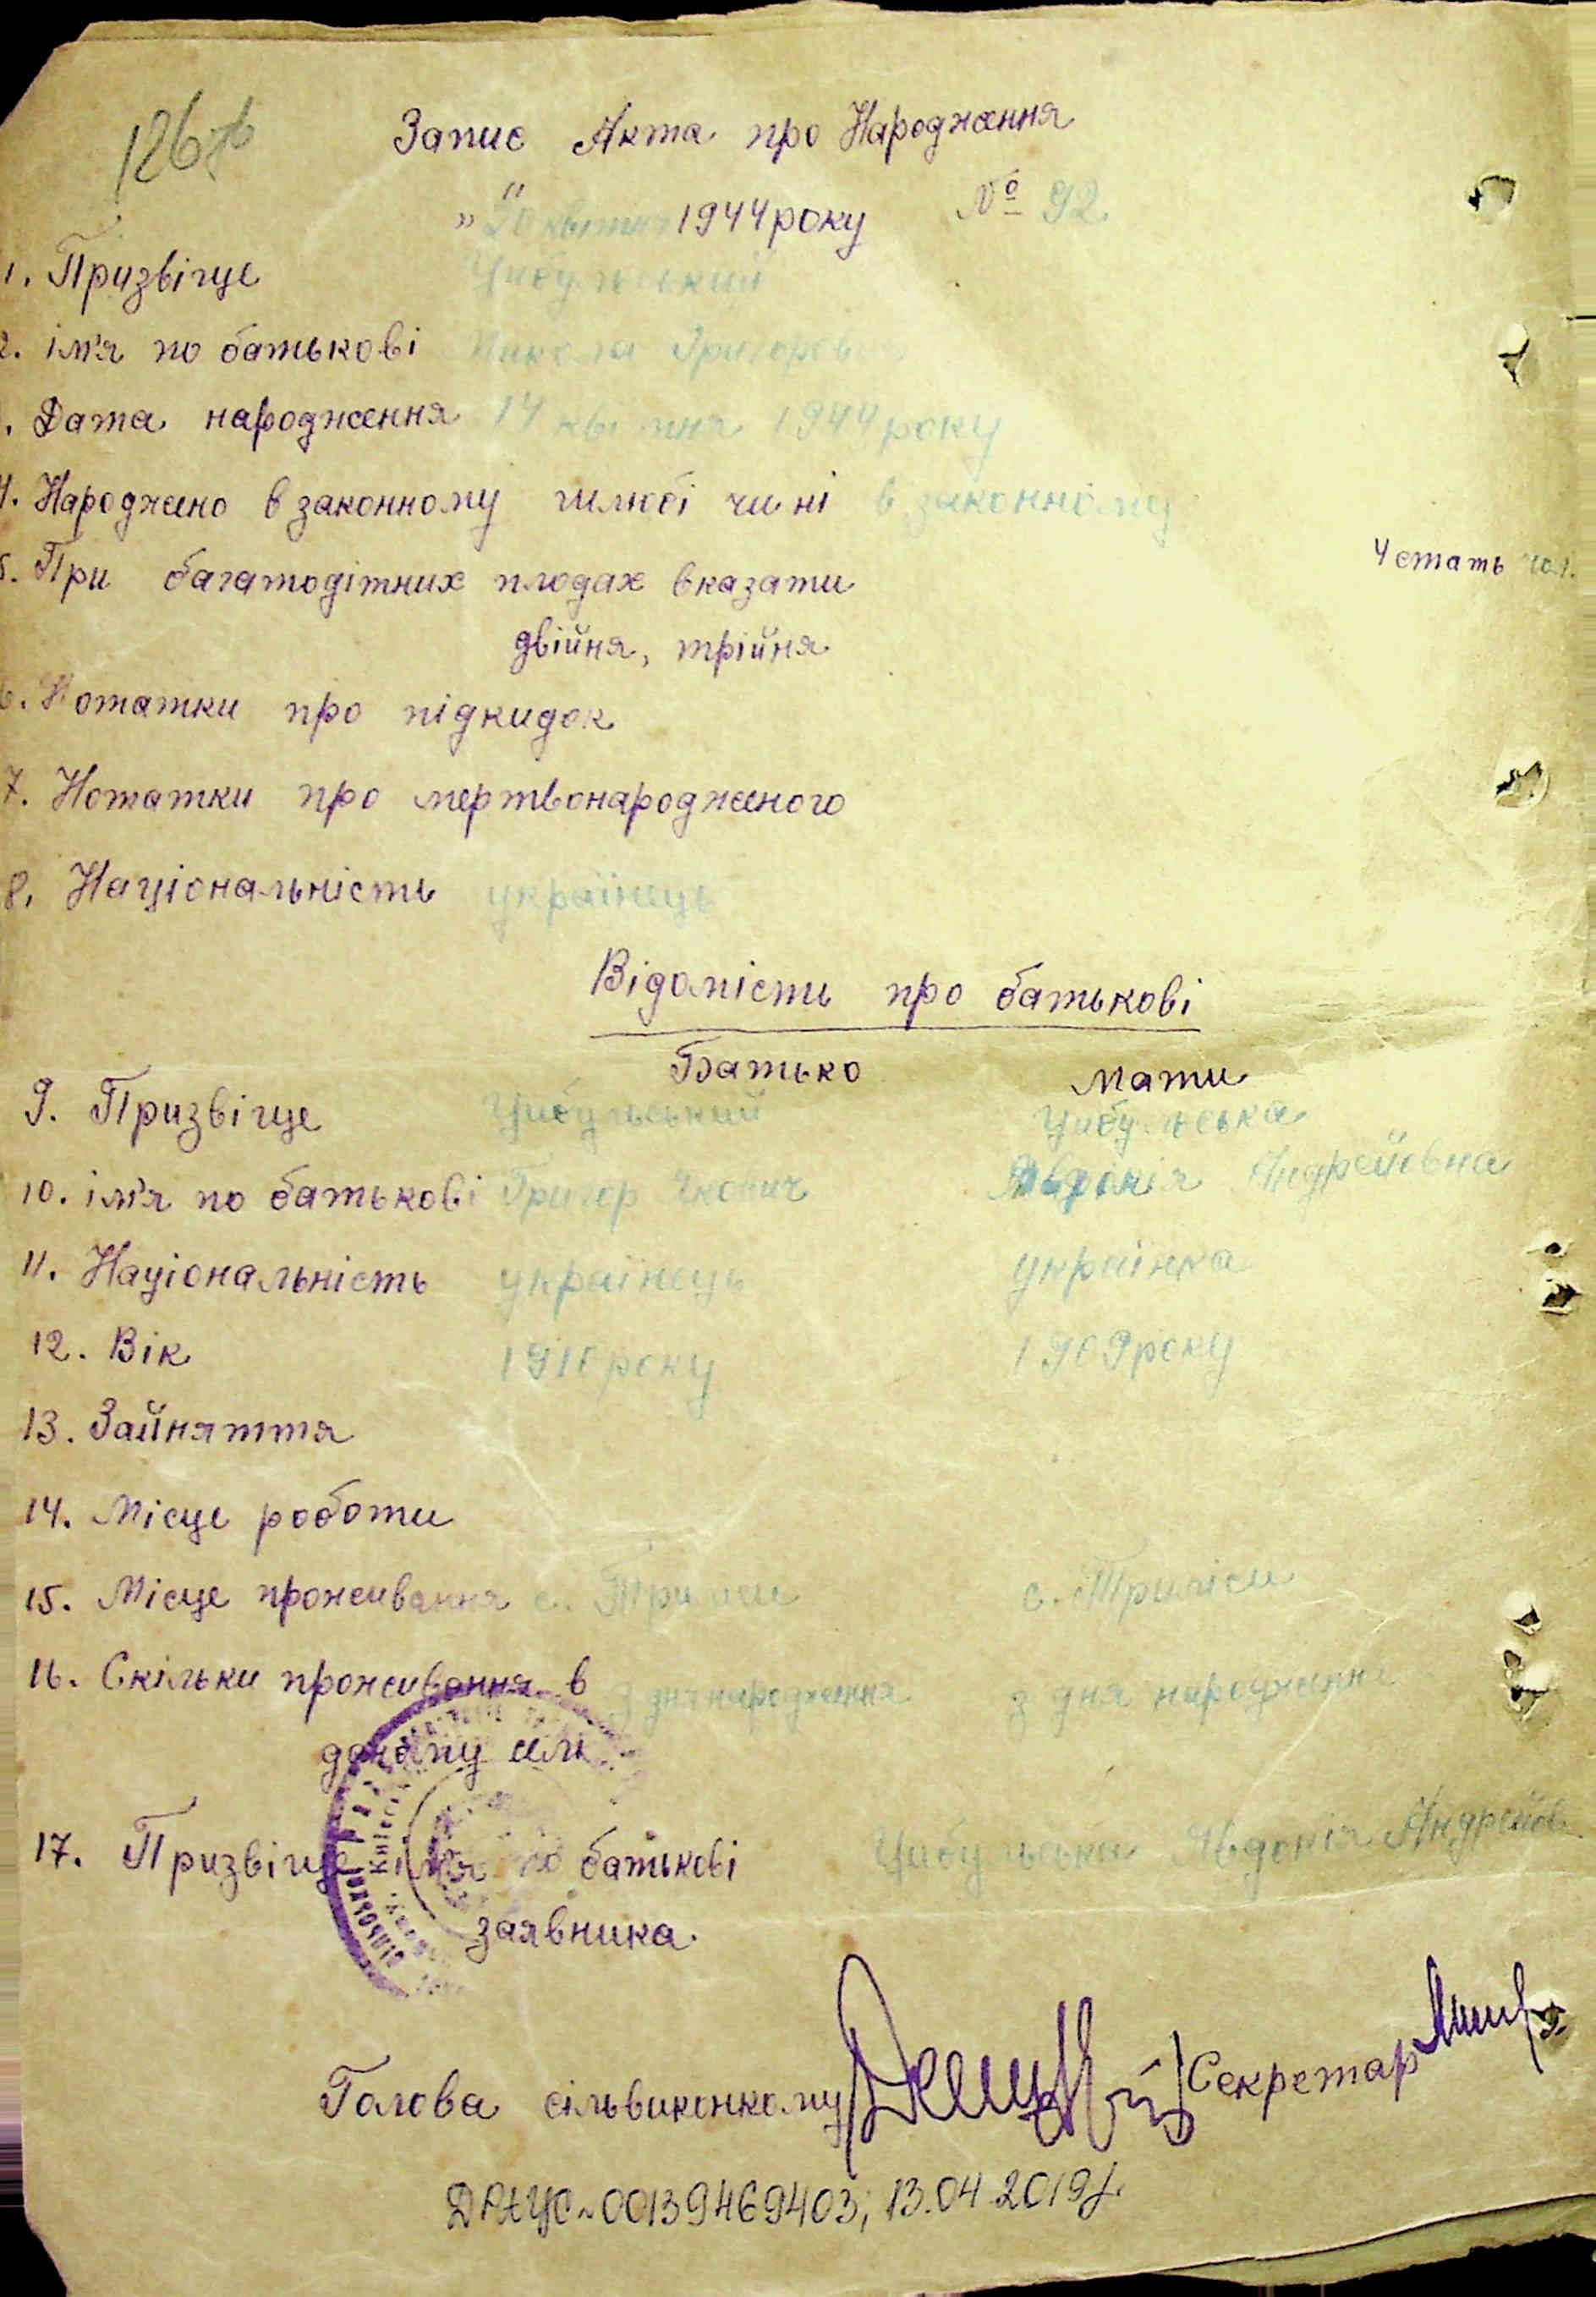 126
Запис Акта про Народження
„20 квітня" 1944 року № 92.
1. Призвіще Цибульський
2. ім'я по батькові Микола Григоров
. Дата народження 14 квітня 1944 року
4. Народжено в законному шлюбі чи ні в законному
5. При багатодітних плодах вказати
4 стать чол.
двійня, трійня
6. Нотатки про підкидок
7. Нотатки про мертвонародженого
8. Національність українець
Відомість про батькові
Батько мати
9. Призвіще Цибульський Цибульська
10. ім'я по батькові Григор Якович Явдокія Андрейовна
11. Національність українець українка
12. Вік 1910 року 1909 року
13. Зайняття
14. Місце роботи
15. Місце проживання с. Триліси с. Триліси
16. Скільки проживання в з дня народження з дня народження
даному селі
17. Призвіще ім'я по батькові Цибульська Явдокія Андрейов
заявника
Голова сільвиконкому Секретар
ДРАЦС-00139469403; 13.04.2019р.